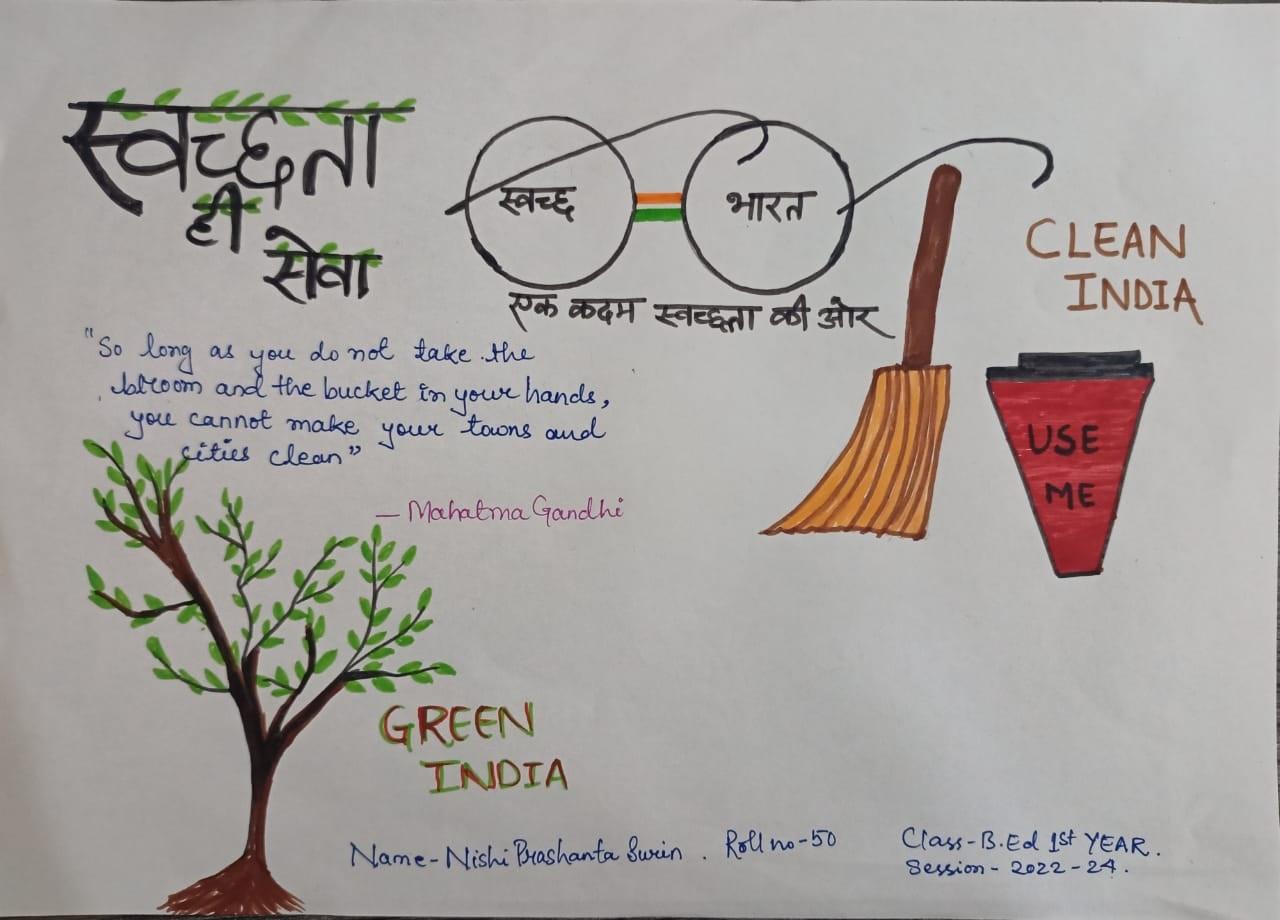 स्वच्छता
ही
सेवा
स्वच्छ भारत
एक कदम स्वच्छता की ओर
CLEAN
INDIA
"So long as you do not take the
broom and the bucket in your hands,
you cannot make your towns and
cities clean"
— Mahatma Gandhi
USE
ME
GREEN
INDIA
Name-Nishi Prashanta Surin. Roll no-50
Class-B.Ed 1st YEAR.
Session-2022-24.